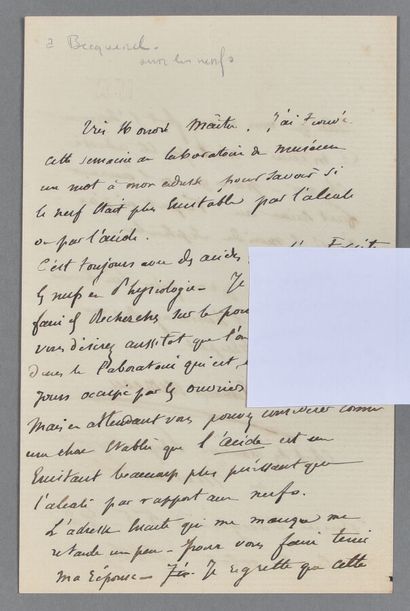 à Becquerel
sur les nerfs
Très Honoré Maître, J'ai trouvé
cette semaine au laboratoire du muséum
un mot à mon adresse pour savoir si
le nerf était plus excitable par l'alcali
ou par l'acide.
C'est toujours avec des acides
les nerfs en Physiologie - Je
faire les Recherches sur le
vous désirez aussitôt que l'on
dans le laboratoire qui est,
jours occupé par les ouvriers
Mais en attendant vous pouvez considérer comme
une chose établie que l'acide est un
Excitant beaucoup plus puissant que
l'alcali par rapport aux nerfs.
L'adresse exacte qui me manque me
retarde un peu - pour vous faire tenir
ma réponse - Je regrette que cette